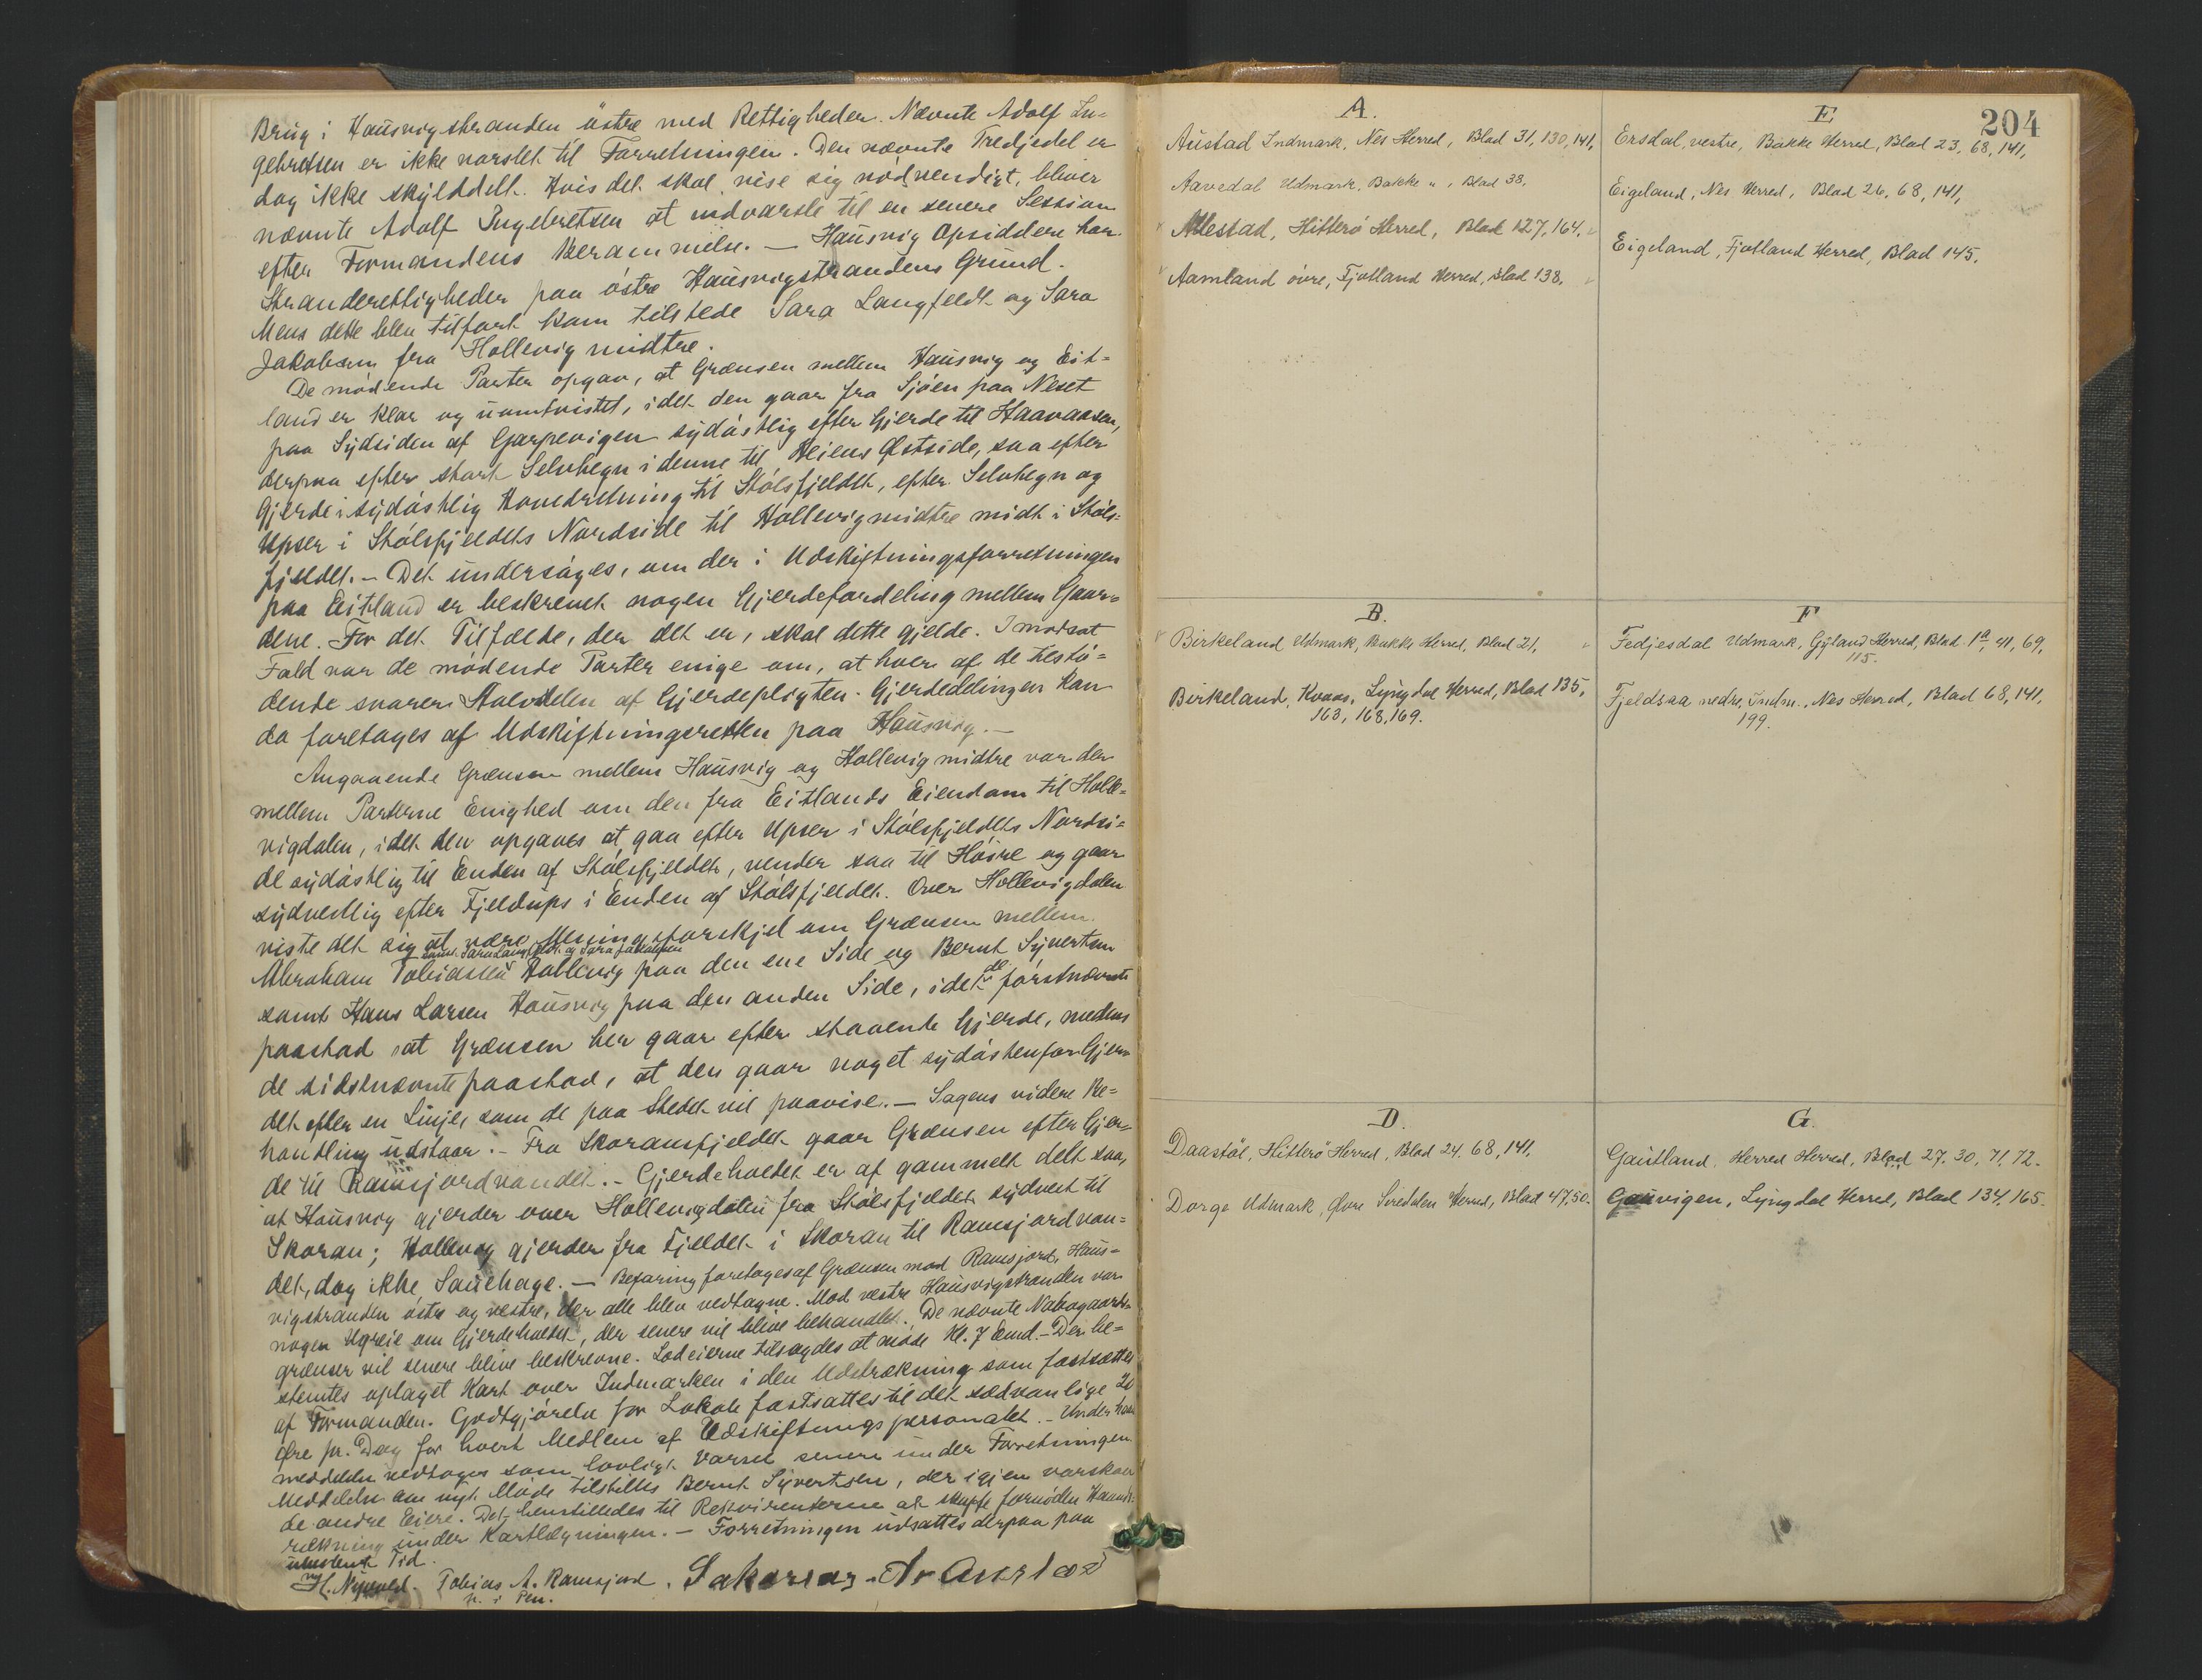 Brug i Hausvigstranden östre med Rettigheder. Nævnte Adolf In=
gebretsen er ikke varslet til Forretningen. Den nævnte Tredjedel er
dog ikke skylddelt. Hvis det skal vise sig nödvendigt, bliver
nævnte Adolf Ingebretsen at indvarsle til en senere Session
efter Formandens Berammelse. — Hausvig Opsiddere har
Stranderettigheder paa östre Hausvigstrandens Grund.
Mens dette blev tilfört kom tilstede Sara Langfeldt og Sara
Jakobsen fra Hollevig midtre.
De mödende Parter opgav, at Grænsen mellem Hausvig og Eit=
land er klar og uomtvistet, idet den gaar fra Sjöen paa Neset
paa Sydsiden af Garpevigen sydöstlig efter Gjerde til Haavaasen,
derpaa efter stort Selvhegn i denne til Heiens Östside, saa efter
Gjerde i sydöstlig Hovedretning til Stölsfjeldet, efter Selvhegn og
Upser i Stölsfjeldets Nordside til Hollevig midtre midt i Stöls=
fjeldet. – Det undersöges, om der i Udskiftningsforretningen
paa Eitland er beskrevet nogen Gjerdefordeling mellem Gaar=
dene. For det Tilfælde, der det er, skal dette gjelde. I modsat
Fald var de mödende Parter enige om, at hver af de tilstö=
dende svarer Halvdelen af Gjerdepligten. Gjerdedelingen kan
da foretages af Udskiftningsretten paa Hausvig. —
Angaaende Grænsen mellem Hausvig og Hollevig midtre var der
mellem Parterne Enighed om den fra Eitlands Eiendom til Holle=
vigdalen, idet den opgaves at gaa efter Upser i Stölsfjeldets Nordsi=
de sydöstlig til Enden af Stölsfjeldet, vender saa til Höire og gaar
sydvestlig efter Fjeldups i Enden af Stölsfjeldet. Over Hollevigdalen
viste det sig at være Meningsforskjel om Grænsen mellem
samt Sara Langfeldt og Sara Jakobsen
Abraham Tobiassen Hollevig paa den ene Side og Bernt Syvertsen
samt Hans Larsen Hausvig paa den anden Side, idet de förstnævnte
paastod at Grænsen her gaar efter staaende Gjerde, medens
de sidstnævnte paastod, at den gaar noget sydöstenfor Gjer=
det efter en Linje, som de paa Stedet vil paavise. — Sagens videre Be=
handling udstaar. – Fra Skoransfjeldet gaar Grænsen efter Gjer=
de til Ramsjordvandet. – Gjerdeholdet er af gammelt delt saa,
at Hausvig gjerder over Hollevigdalen fra Stölsfjeldet sydvest til
Skoran; Hollevig gjerder fra Fjeldet i Skoran til Ramsjordvan=
det, dog ikke Sauehage. — Befaring foretages af Grænsen mod Ramsjord, Haus=
vigstranden östre og vestre, der alle blev vedtagne. Mod vestre Hausvigstranden var
nogen Ugreie om Gjerdeholdet, der senere vil blive behandlet. De nævnte Nabogaards=
grænser vil senere blive beskrevne. Lodeierne tilsagdes at möde Kl. 7 Emd. – Der be=
stemtes optaget Kart over Indmarken i den Udstrækning som fastsættes
af Formanden. Godtgjörelse for Lokale fastsattes til det sædvanlige 20
Öre pr. Dag for hvert Medlem af Udskiftningspersonalet. – Under
meddelelse vedtoges som lovligt Varsel senere under Forretningen.
Meddelelse om nyt Möde tilstilles Bernt Syvertsen, der igjen varskoer
de andre Eiere. Det henstilledes til Rekvirenterne at skaffe fornöden Haand=
rækning under Kartlægningen. — Forretningen udsattes derpaa paa
ubestemt Tid.
H. Nyvold. Tobias A. Ramsjord.
m. i Pen.
204
A.
Austad Indmark, Nes Herred, Blad 31, 130, 141,
Aavedal Udmark, Bakke „ , Blad 38,
Allestad, Hitterö Herred, Blad 127, 164.
Aamland övre, Fjotland Herred, Blad 138.
E
Ersdal, vestre, Bakke Herred, Blad 23, 68, 141,
Eigeland, Nes Herred, Blad 26, 68, 141,
Eigeland, Fjotland Herred, Blad 145.
B.
Birkeland Udmark, Bakke Herred, Blad 21,
Birkeland, Kvaas, Lyngdal Herred, Blad 135,
163, 168, 169.
F
Fedjesdal Udmark, Gyland Herred, Blad 1a, 41, 69,
115.
Fjeldsaa nedre, Indm., Nes Herred, Blad 68, 141,
199.
D.
Daastöl, Hitterö Herred, Blad 24, 68, 141,
Dorge Udmark, Övre Siredalen Herred, Blad 47, 50.
G.
Gautland, Herred Herred, Blad 27, 30, 71, 72.
Gauvigen, Lyngdal Herred, Blad 134, 165.